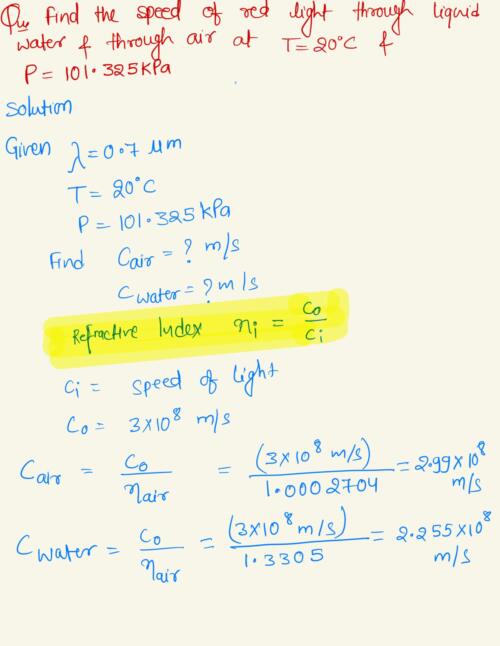 Qu Find the speed of red light through liquid
water & through air at T=20°C &
P = 101.325KPa
Solution
Given λ=0.7 μm
T= 20°C
P = 101.325kPa
Find Cair = ? m/s
Cwater = ? m/s
Refractive Index ni = Co/Ci
Ci = Speed of light
Co = 3×10⁸ m/s
Cair = Co/ηair = (3×10⁸ m/s)/1.0002704 = 2.99×10⁸ m/s
Cwater = Co/ηair = (3×10⁸ m/s)/1.3305 = 2.255×10⁸ m/s